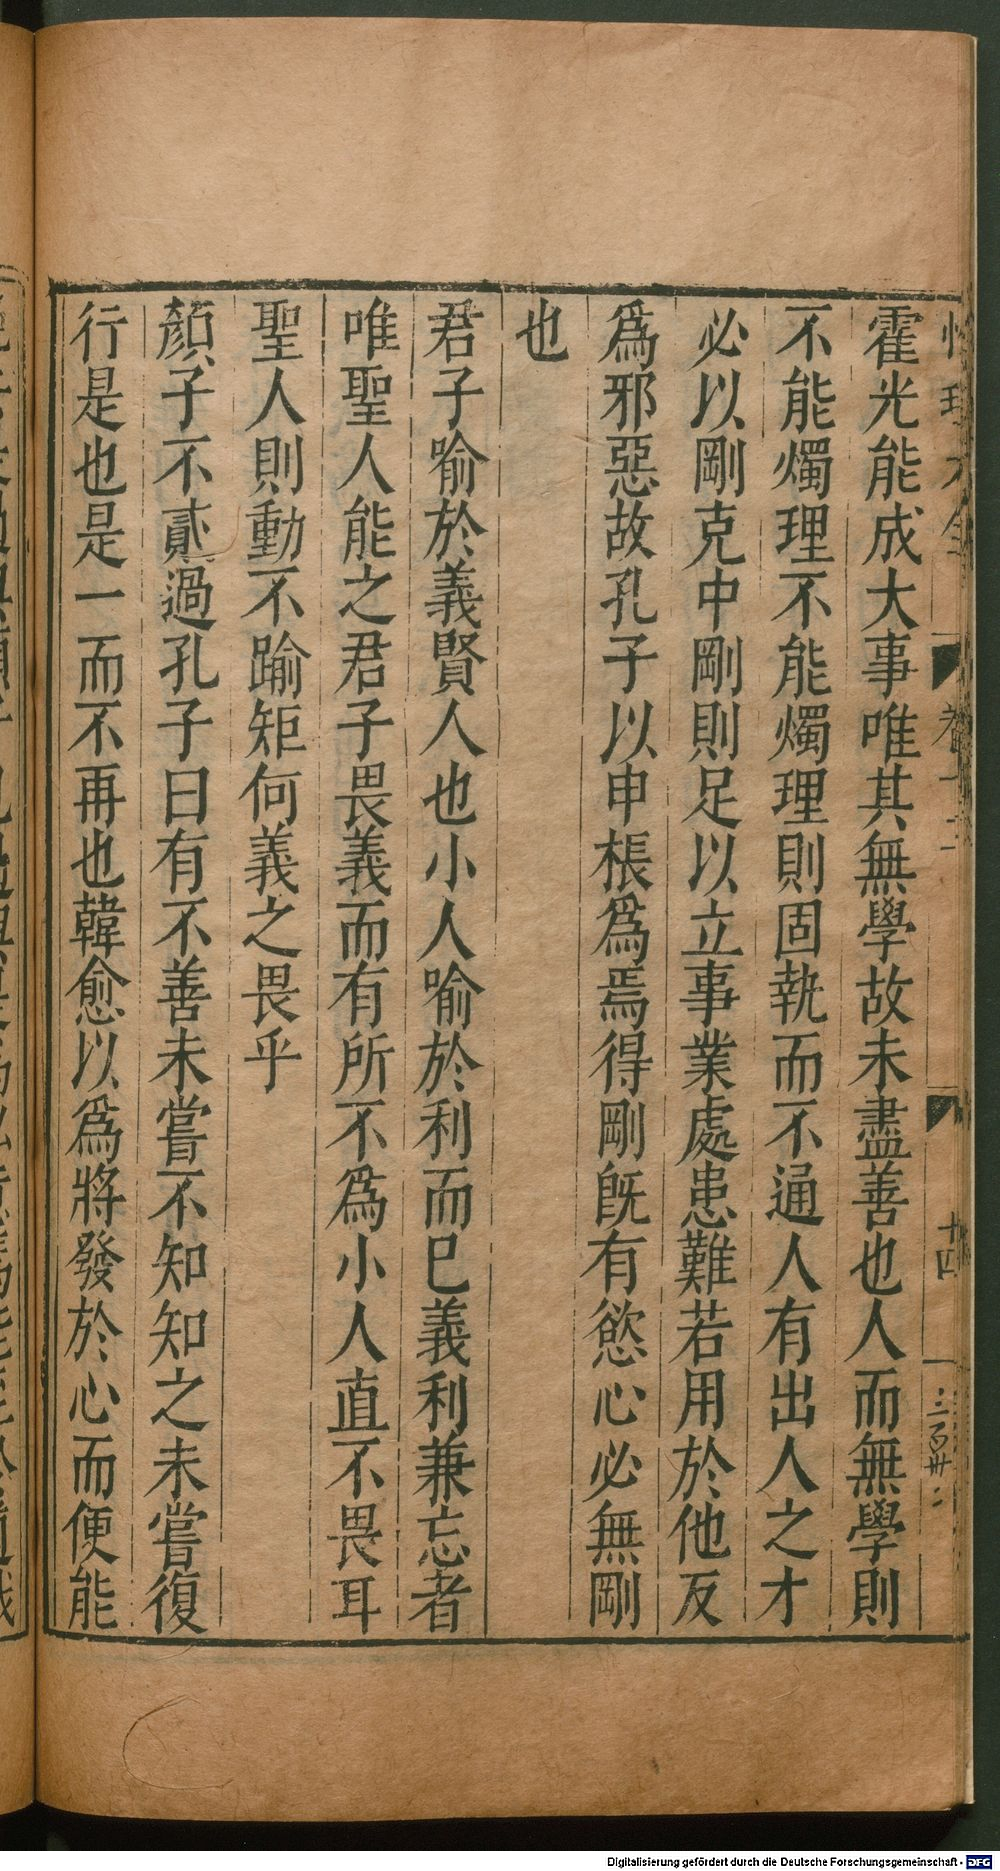 霍光能成大事唯其無學故未盡善也人而無學則
不能燭理不能燭理則固執而不通人有出人之才
必以剛克中剛則足以立事業處患難若用於他反
爲邪惡故孔子以申棖爲焉得剛旣有慾心必無剛
也
君子喻於義賢人也小人喻於利而已義利兼忘者
唯聖人能之君子畏義而有所不爲小人直不畏耳
聖人則動不踰矩何義之畏乎
顏子不貳過孔子曰有不善未嘗不知知之未嘗復
行是也是一而不再也韓愈以爲將發於心而便能
十四
Digitalisierung gefördert durch die Deutsche Forschungsgemeinschaft - DFG